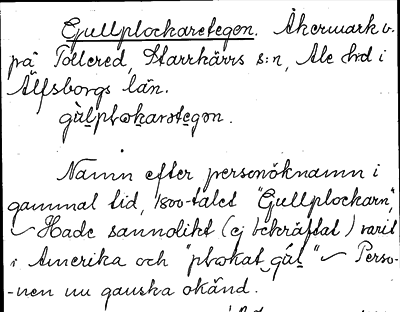 Gullplockaretegen. Åkermark v.
på Tollered, Starrkärrs s:n, Ale hrd i
Älfsborgs län.
gùlplɔkarətegən.
Namn efter personöknamn i
gammal tid, 1800-talet "Gullplockarn",
Hade sannolikt (ej bekräftat) varit
i Amerika och "plɔkat gúl" Perso-
-nen nu ganska okänd.